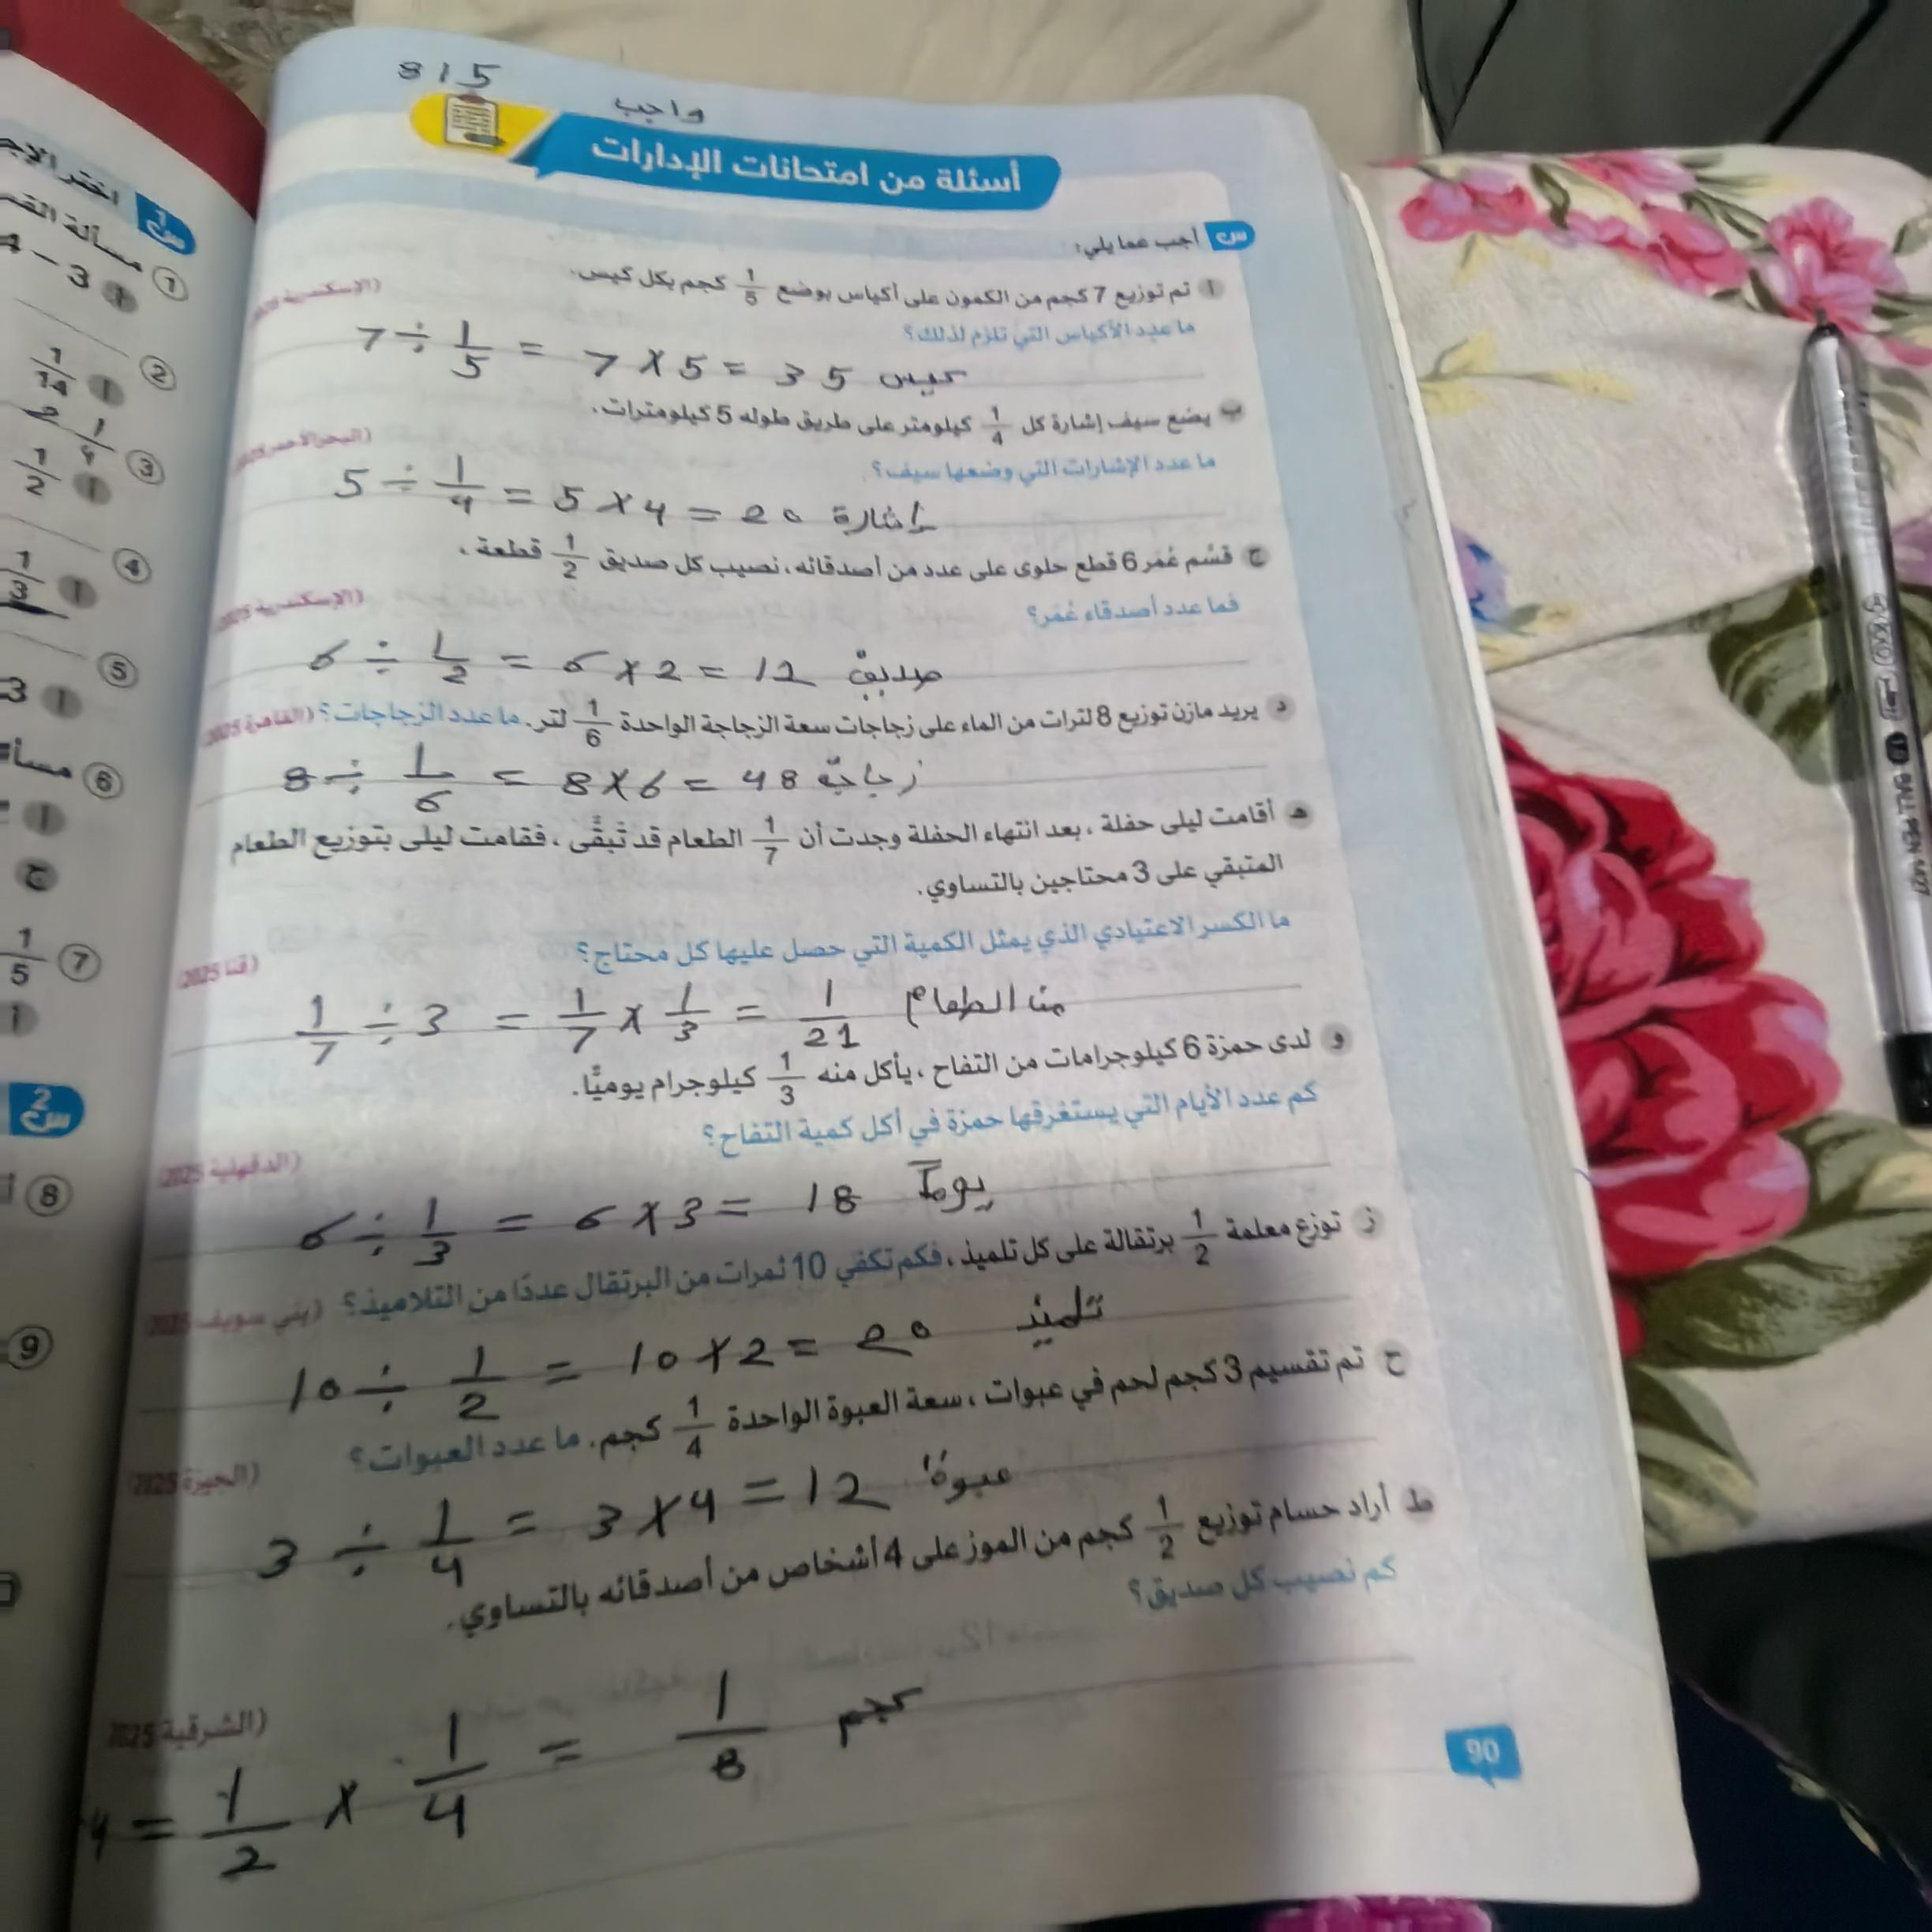 815
واجب
أسئلة من امتحانات الإدارات
س أجب عما يلي:
أ تم توزيع 7 كجم من الكمون على أكياس بوضع 1/5 كجم بكل كيس.
ما عدد الأكياس التي تلزم لذلك؟ (الإسكندرية 2025)
7 ÷ 1/5 = 7 × 5 = 35 كيس
ب يضع سيف إشارة كل 1/4 كيلومتر على طريق طوله 5 كيلومترات.
ما عدد الإشارات التي وضعها سيف؟ (البحر الأحمر 2025)
5 ÷ 1/4 = 5 × 4 = 20 إشارة
ج قسَّم عُمَر 6 قطع حلوى على عدد من أصدقائه، نصيب كل صديق 1/2 قطعة،
فما عدد أصدقاء عُمَر؟ (الإسكندرية 2025)
6 ÷ 1/2 = 6 × 2 = 12 صديق
د يريد مازن توزيع 8 لترات من الماء على زجاجات سعة الزجاجة الواحدة 1/6 لتر. ما عدد الزجاجات؟ (القاهرة 2025)
8 ÷ 1/6 = 8 × 6 = 48 زجاجة
هـ أقامت ليلى حفلة، بعد انتهاء الحفلة وجدت أن 1/7 الطعام قد تَبقَّى، فقامت ليلى بتوزيع الطعام
المتبقي على 3 محتاجين بالتساوي.
ما الكسر الاعتيادي الذي يمثل الكمية التي حصل عليها كل محتاج؟ (قنا 2025)
1/7 ÷ 3 = 1/7 × 1/3 = 1/21 منا الطعام
و لدى حمزة 6 كيلوجرامات من التفاح، يأكل منه 1/3 كيلوجرام يوميًّا.
كم عدد الأيام التي يستغرقها حمزة في أكل كمية التفاح؟ (الدقهلية 2025)
6 ÷ 1/3 = 6 × 3 = 18 يوماً
ز توزع معلمة 1/2 برتقالة على كل تلميذ، فكم تكفي 10 ثمرات من البرتقال عددًا من التلاميذ؟ (بني سويف 2025)
10 ÷ 1/2 = 10 × 2 = 20 تلميذ
ح تم تقسيم 3 كجم لحم في عبوات، سعة العبوة الواحدة 1/4 كجم. ما عدد العبوات؟ (الجيزة 2025)
3 ÷ 1/4 = 3 × 4 = 12 عبوة
ط أراد حسام توزيع 1/2 كجم من الموز على 4 أشخاص من أصدقائه بالتساوي.
كم نصيب كل صديق؟ (الشرقية 2025)
4 = 1/2 × 1/4 = 1/8 كجم
90
س1 اختر الإجـ
1 مسألة القسـ
أ 3 –
2
أ 1/14
1/4
3
أ 1/2
4
أ 1/3
5
أ 3
6 مسأ
أ
ج
7 1/5
أ
س2
8
9
BALL PEN